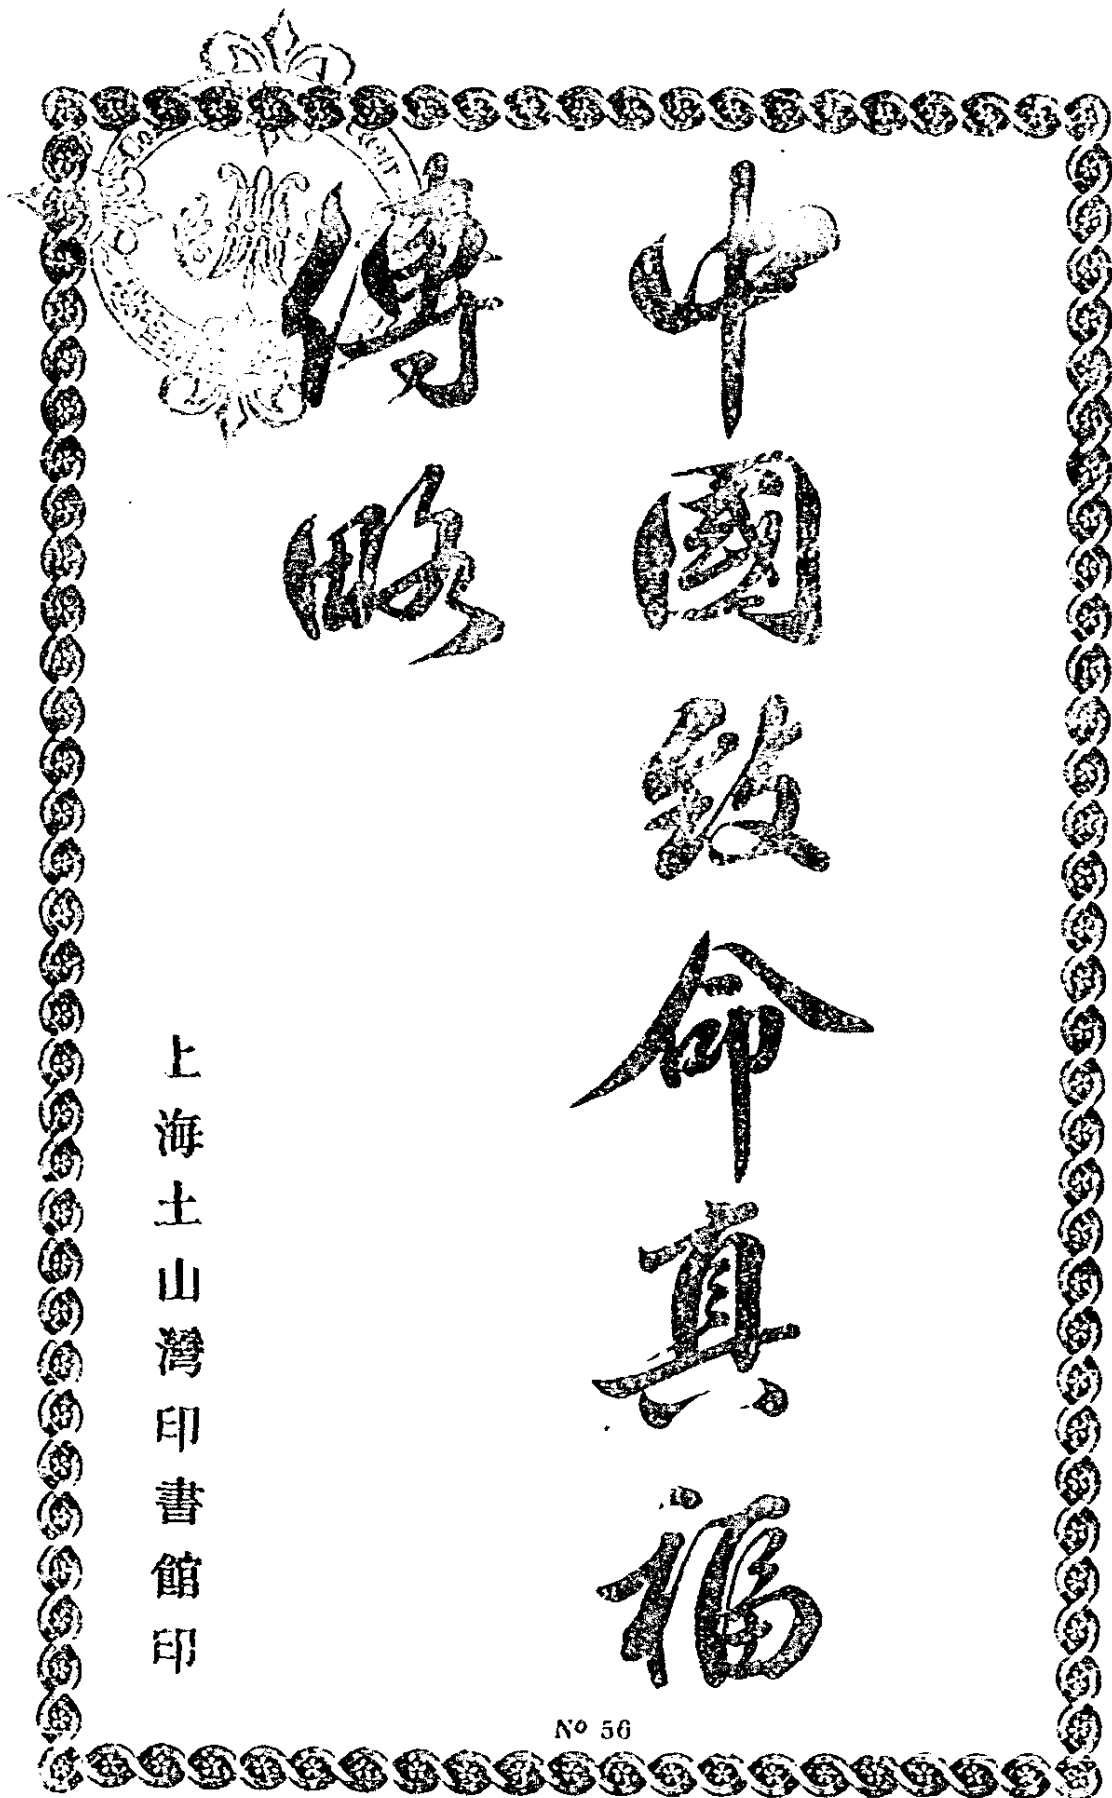 中國致命真福
傳略
上海土山灣印書館印
Nº 56